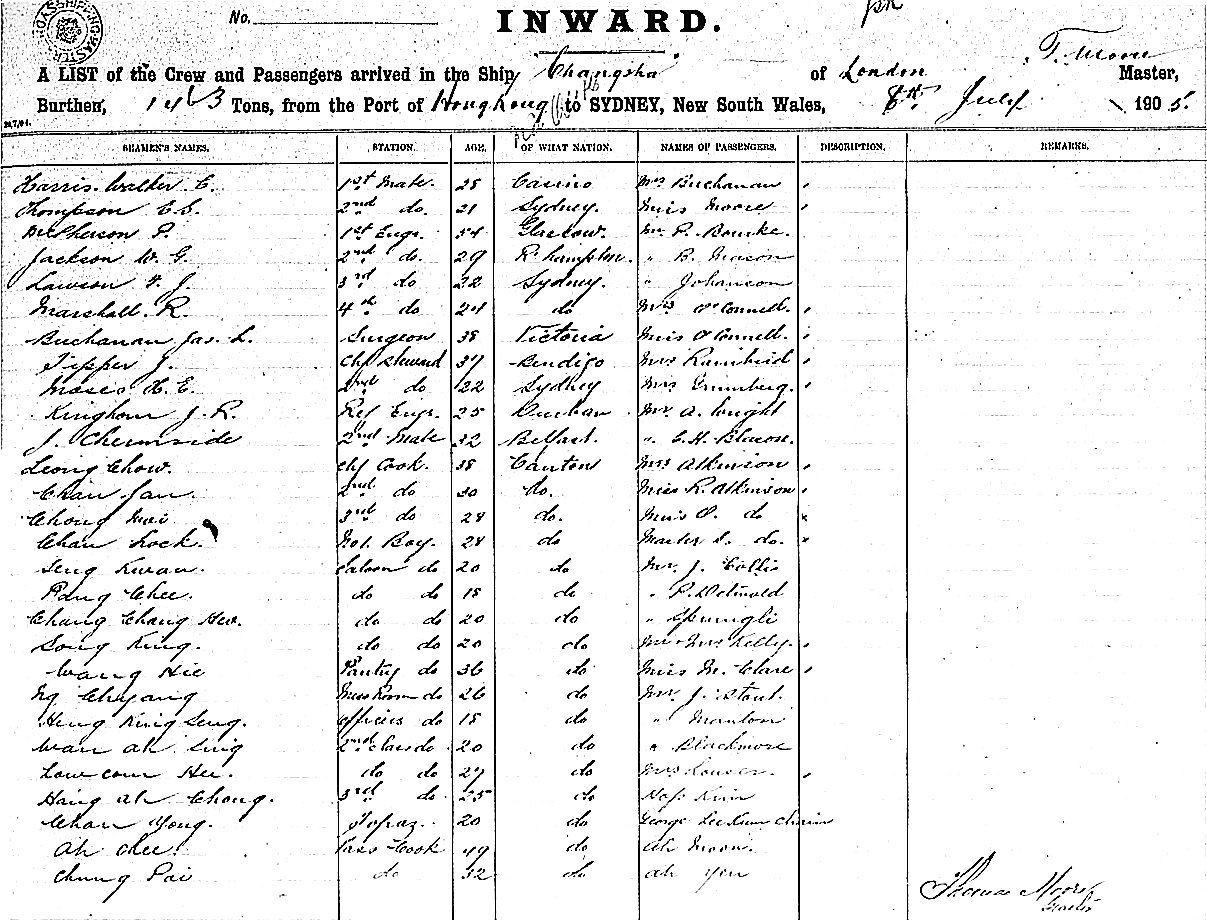 No.
INWARD.
A LIST of the Crew and Passengers arrived in the Ship "Changsha" of London T. Moore Master,
Burthen, 1463 Tons, from the Port of Hongkong to SYDNEY, New South Wales, 8th July 1905.
SEAMEN'S NAMES. STATION. AGE. OF WHAT NATION. NAMES OF PASSENGERS. DESCRIPTION. REMARKS.
Harris Walter C. 1st Mate. 28 Casino Mrs Buchanan
Thompson C.S. 2nd do. 21 Sydney. Miss Moore
McPherson P. 1st Engr. 54 Glascow. Mr. P. Bourke.
Jackson W. G. 2nd do. 29 R'hampton. " B. Mason
Lawson J. 3rd do 22 Sydney. " Johanson
Marshall. R. 4th do 24 do Mrs O'Connell.
Buchanan Jas. L. Surgeon 38 Victoria Miss O'Connell.
Tipper J. Chf Steward 37 Bendigo Mrs
Moses H. E. 2nd do 22 Sydney Mrs Grunberg.
Kinghorn J. R. Ref Engr. 25 Durban Mr A. Wright
J. Chermside 2nd Mate 32 Belfast. " E. H.
Leong Chow. Chf Cook. 38 Canton Mrs Atkinson
Chan Jan. 2nd do 30 do. Miss R. Atkinson
Chong Mui 3rd do 28 do. Miss O. do
Chan Lock. Boy. 28 do Master S. do.
Seng Kwan. Saloon do 20 do Mr. J. Collis
Pang Chee. do do 18 do " P. Detmold
Chang Chang Hew. do do 20 do " Sprungli
Song King. do do 20 do Mr & Mrs Kelly.
Wang Hie Pantry do 36 do Miss M. Clare
Ng Chyang Mess Room do 26 do Mr. J. Stout.
Heng King Seng. Officers do 18 do " Manton
Wan ah Sing 2nd Class do 20 do " Blackmore
Low com Hee. do do 27 do Mrs
Hang ah Chong. 3rd do 25 do Kim
Chan Yong. Topaz. 20 do George Lee Kum
Ah Chee. Pass Cook 49 do Ah Moon.
Chung Pai do 32 do Ah Yen
Thomas Moore
Master